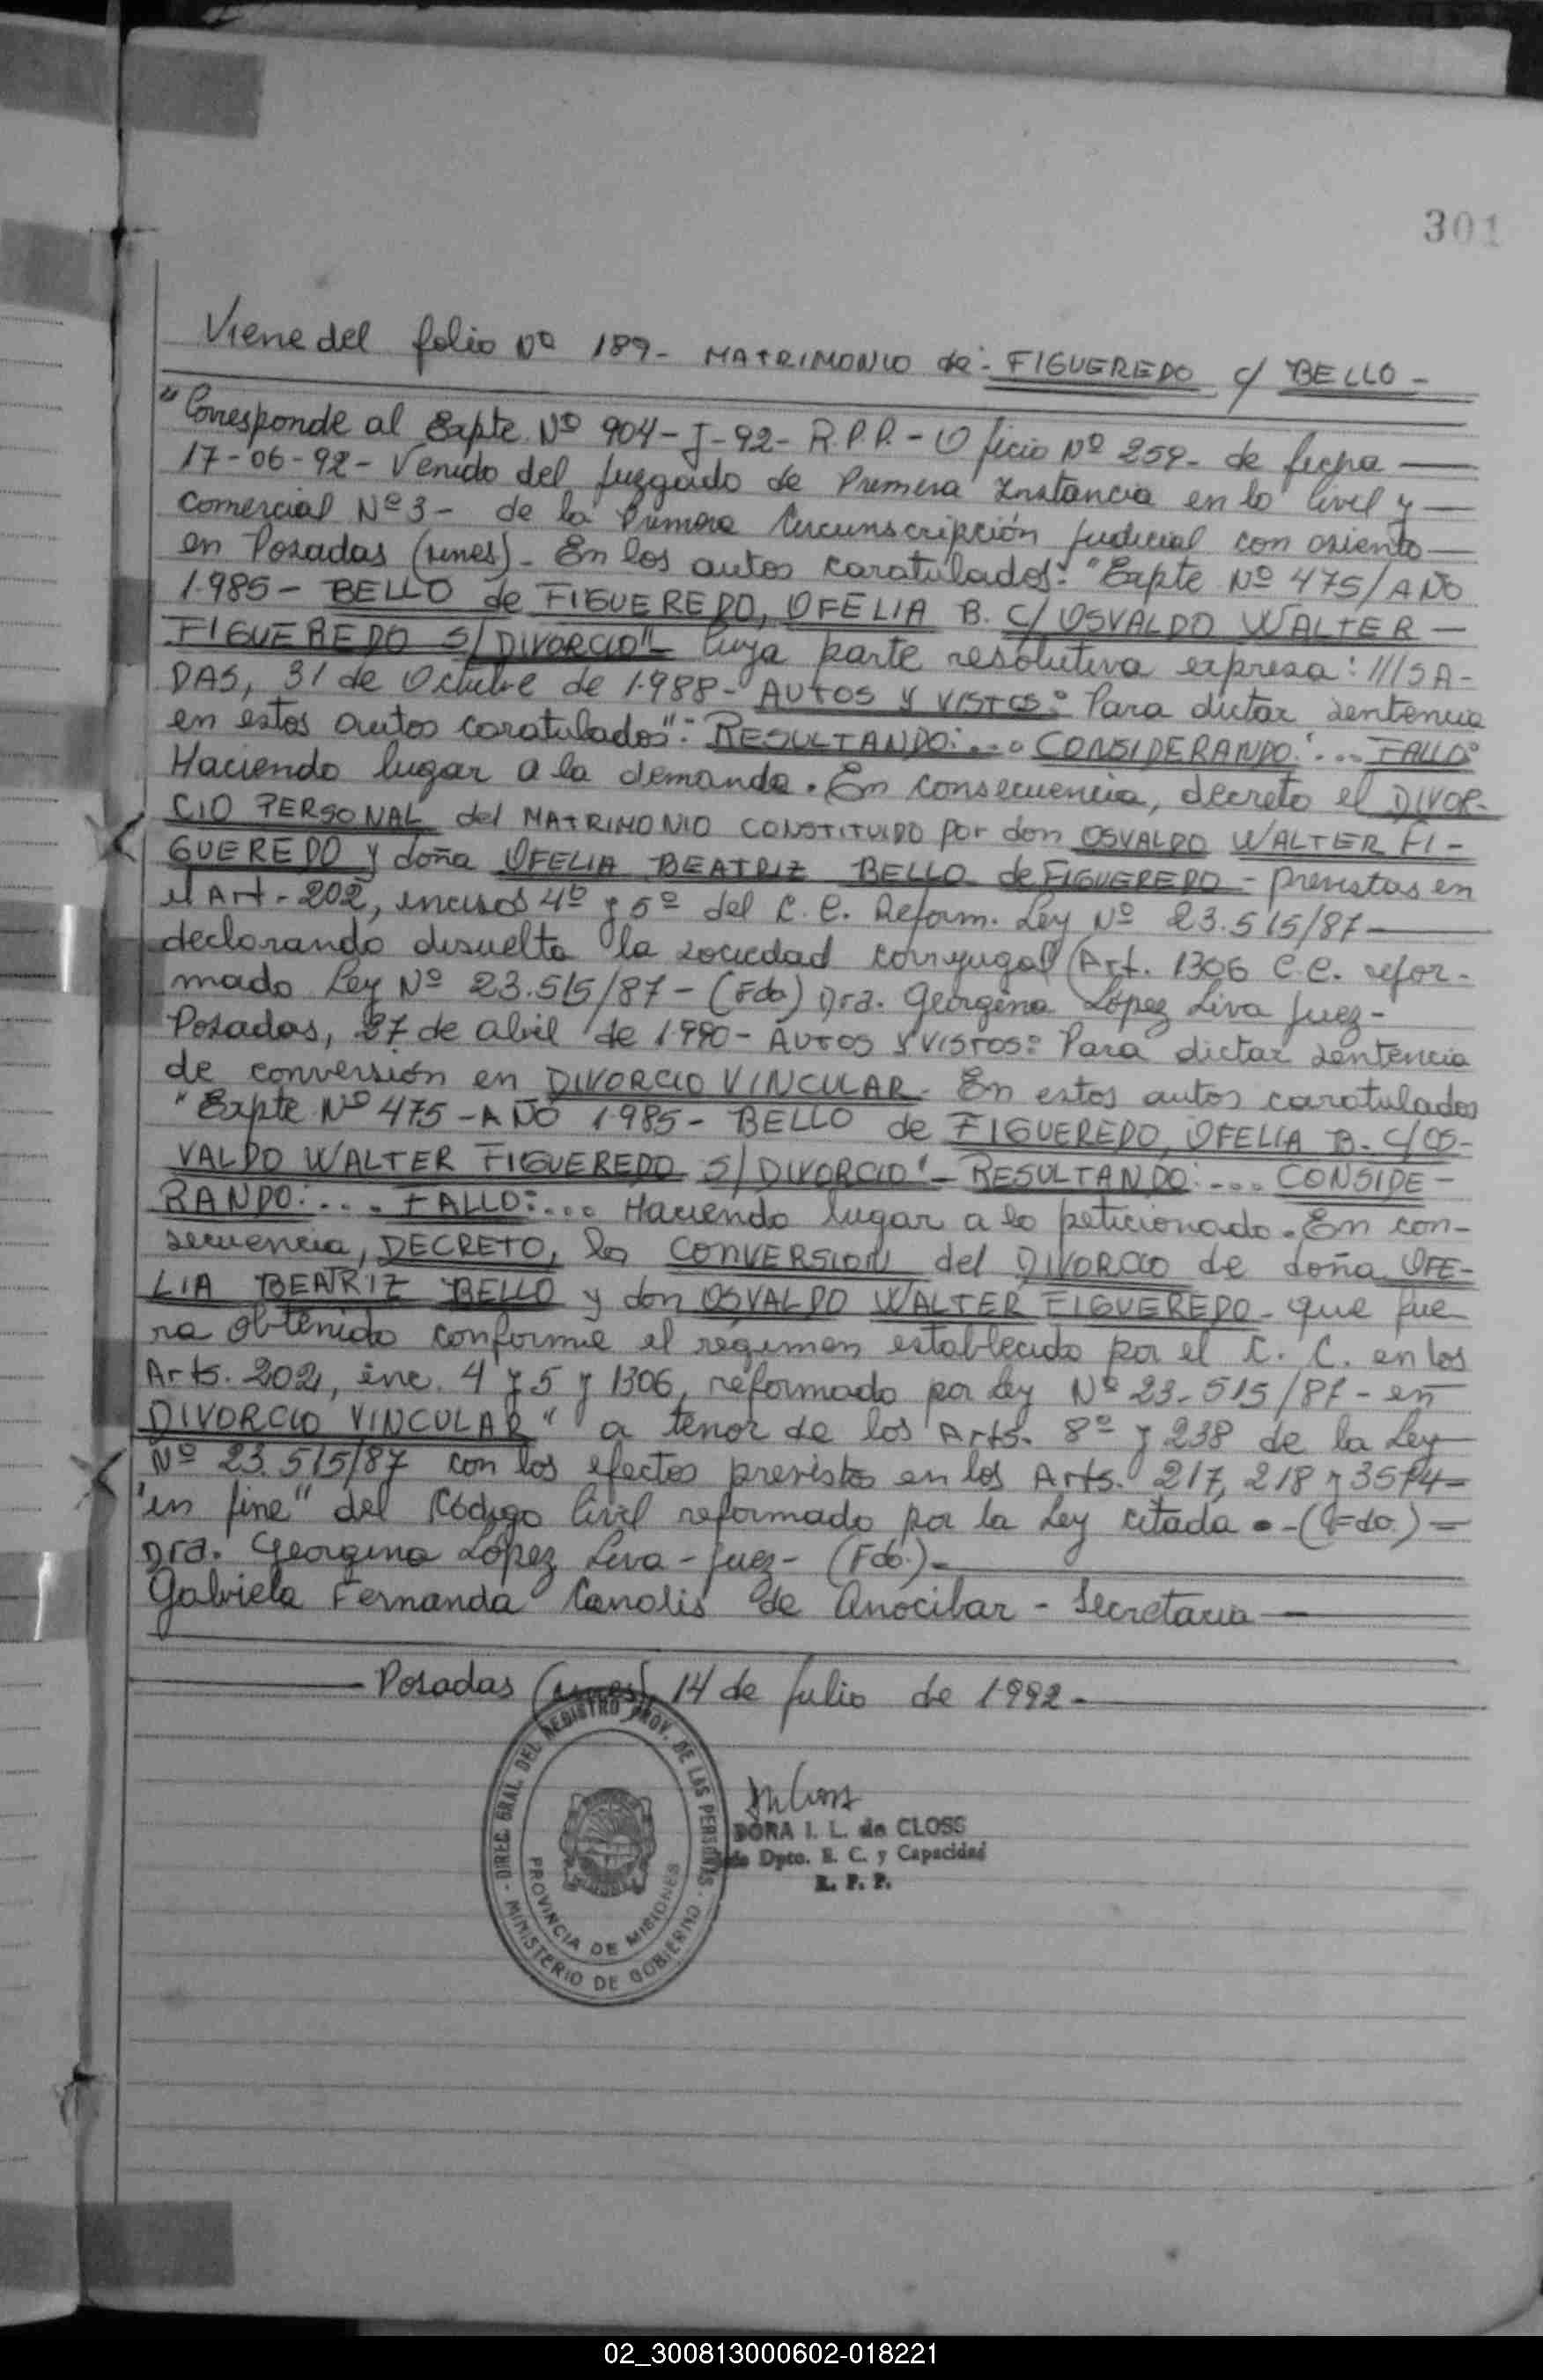 301
Viene del folio Nº 189- MATRIMONIO de- FIGUEREDO c/ BELLO-
"Corresponde al Expte Nº 904-J-92- R.P.P.- Oficio Nº 259- de fecha
17-06-92- Venido del Juzgado de Primera Instancia en lo Civil y
Comercial Nº 3- de la Primera Circunscripción Judicial con asiento
en Posadas (Mnes)- En los autos caratulados: "Expte Nº 475/AÑO
1.985- BELLO de FIGUEREDO, OFELIA B. C/ OSVALDO WALTER-
FIGUEREDO S/DIVORCIO"- Cuya parte resolutiva expresa: ///SA-
DAS, 31 de Octubre de 1.988- AUTOS Y VISTOS: Para dictar sentencia
en estos autos caratulados": RESULTANDO:... CONSIDERANDO:... FALLO:
Haciendo lugar a la demanda. En consecuencia, decreto el DIVOR-
CIO PERSONAL del MATRIMONIO CONSTITUIDO por don OSVALDO WALTER FI-
GUEREDO y doña OFELIA BEATRIZ BELLO de FIGUEREDO- previstas en
el Art-202, incisos 4º y 5º del C.C. Reform. Ley Nº 23.515/87
declarando disuelta la sociedad conyugal (Art. 1306 C.C. refor-
mado Ley Nº 23.515/87- (Fdo) Dra. Georgina López Liva Juez-
Posadas, 27 de abril de 1990- AUTOS Y VISTOS: Para dictar sentencia
de conversión en DIVORCIO VINCULAR. En estos autos caratulados
"Expte Nº 475-AÑO 1.985- BELLO de FIGUEREDO, OFELIA B. C/OS-
VALDO WALTER FIGUEREDO S/DIVORCIO"- RESULTANDO:... CONSIDE-
RANDO:... FALLO:... Haciendo lugar a lo peticionado. En con-
secuencia, DECRETO, la CONVERSION del DIVORCIO de doña OFE-
LIA BEATRIZ BELLO y don OSVALDO WALTER FIGUEREDO- que fue
ra obtenido conforme el régimen establecido por el C.C. en los
Arts. 202, inc. 4 y 5 y 1306, reformado por Ley Nº 23.515/87- en
DIVORCIO VINCULAR" a tenor de los Arts. 8º y 238 de la Ley
Nº 23.515/87 con los efectos previstos en los Arts. 217, 218 y 3574-
"in fine" del Código Civil reformado por la Ley citada.-(Fdo.)-
Dra. Georgina López Liva-Juez- (Fdo.)-
Gabriela Fernanda Canalis de Anocibar- Secretaria-
Posadas (Mnes), 14 de Julio de 1992-
DIREC. GRAL. DEL REGISTRO PROV. DE LAS PERSONAS
MINISTERIO DE GOBIERNO
PROVINCIA DE MISIONES
DORA I. L. de CLOSS
Dpto. E. C. y Capacidad
R. P. P.
02_300813000602-018221